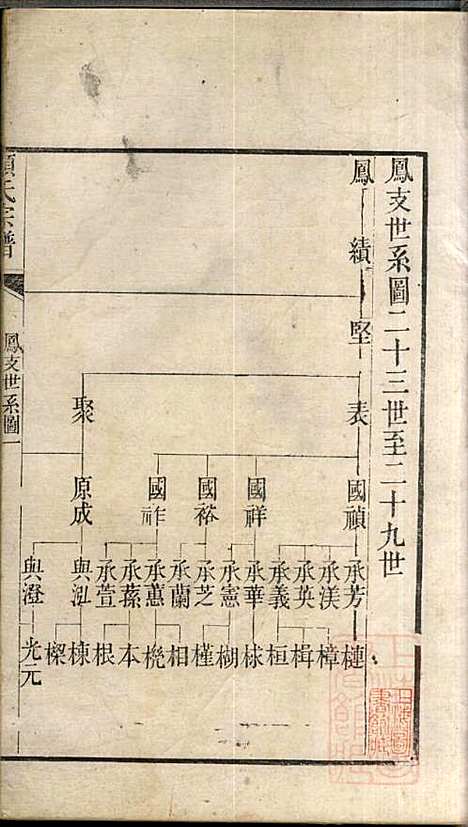 鳳支世系圖二十三世至二十九世
鳳
績
堅
表 聚
國禎 國祥 國裕 國祚 原成
承芳 承渼 承英 承義 承華 承憲 承芝 承蘭 承蕙 承蓀 承萱 與泓 與澄
槤 樟 楫 桓 梂 楜 槿 相 橈 本 根 棟 樑 光元
氏宗譜
鳳支世系圖一